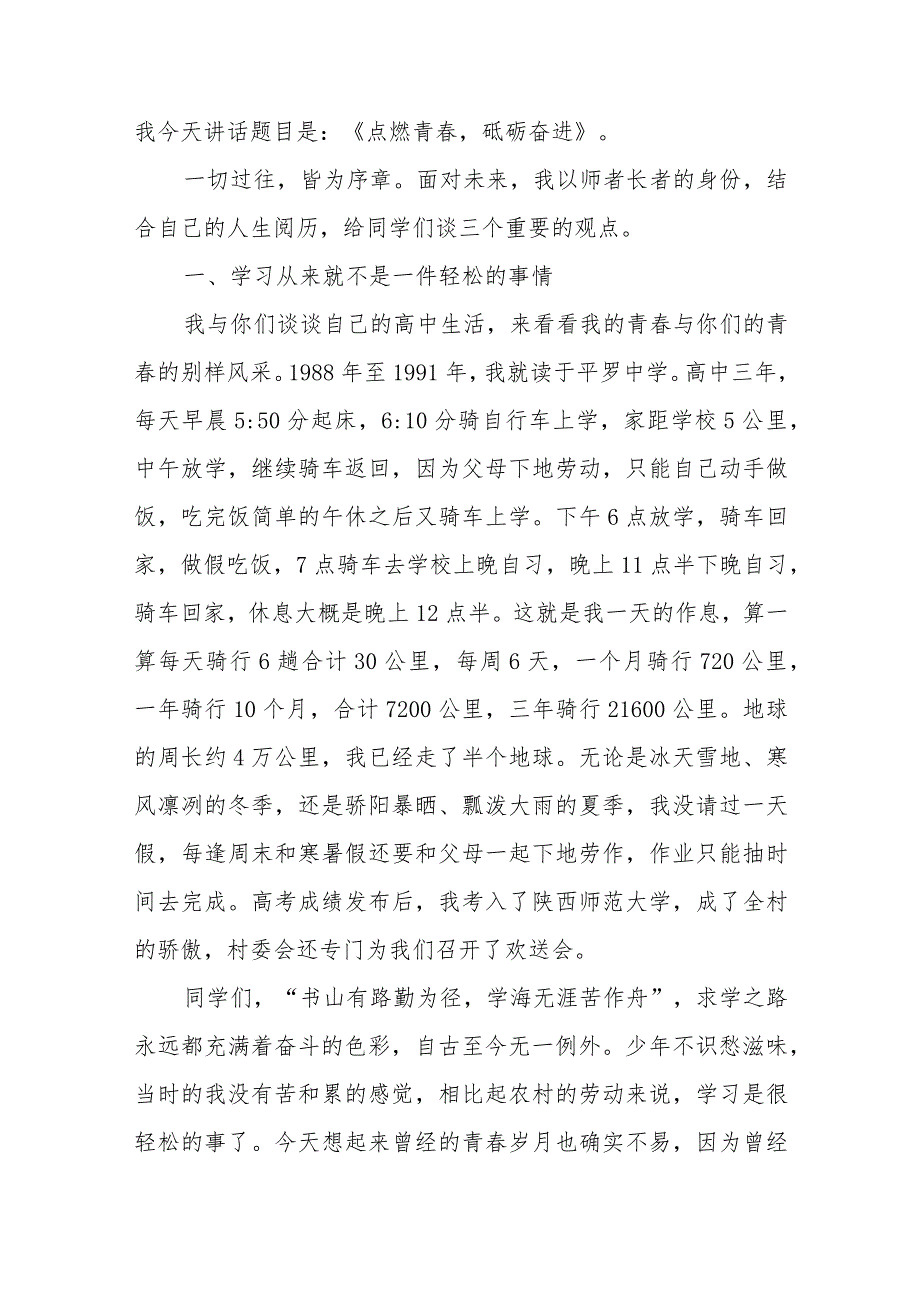 我今天讲话题目是：《点燃青春，砥砺奋进》。
一切过往，皆为序章。面对未来，我以师者长者的身份，结
合自己的人生阅历，给同学们谈三个重要的观点。
一、学习从来就不是一件轻松的事情
我与你们谈谈自己的高中生活，来看看我的青春与你们的青
春的别样风采。1988 年至 1991 年，我就读于平罗中学。高中三年，
每天早晨 5:50 分起床，6:10 分骑自行车上学，家距学校 5 公里，
中午放学，继续骑车返回，因为父母下地劳动，只能自己动手做
饭，吃完饭简单的午休之后又骑车上学。下午 6 点放学，骑车回
家，做假吃饭，7 点骑车去学校上晚自习，晚上 11 点半下晚自习，
骑车回家，休息大概是晚上 12 点半。这就是我一天的作息，算一
算每天骑行 6 趟合计 30 公里，每周 6 天，一个月骑行 720 公里，
一年骑行 10 个月，合计 7200 公里，三年骑行 21600 公里。地球
的周长约 4 万公里，我已经走了半个地球。无论是冰天雪地、寒
风凛冽的冬季，还是骄阳暴晒、瓢泼大雨的夏季，我没请过一天
假，每逢周末和寒暑假还要和父母一起下地劳作，作业只能抽时
间去完成。高考成绩发布后，我考入了陕西师范大学，成了全村
的骄傲，村委会还专门为我们召开了欢送会。
同学们，“书山有路勤为径，学海无涯苦作舟”，求学之路
永远都充满着奋斗的色彩，自古至今无一例外。少年不识愁滋味，
当时的我没有苦和累的感觉，相比起农村的劳动来说，学习是很
轻松的事了。今天想起来曾经的青春岁月也确实不易，因为曾经